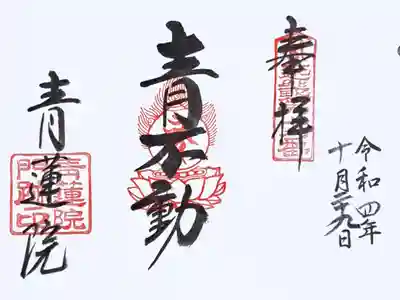 奉拝
令和四年
十月二十九日
青不動
青蓮院
青蓮院